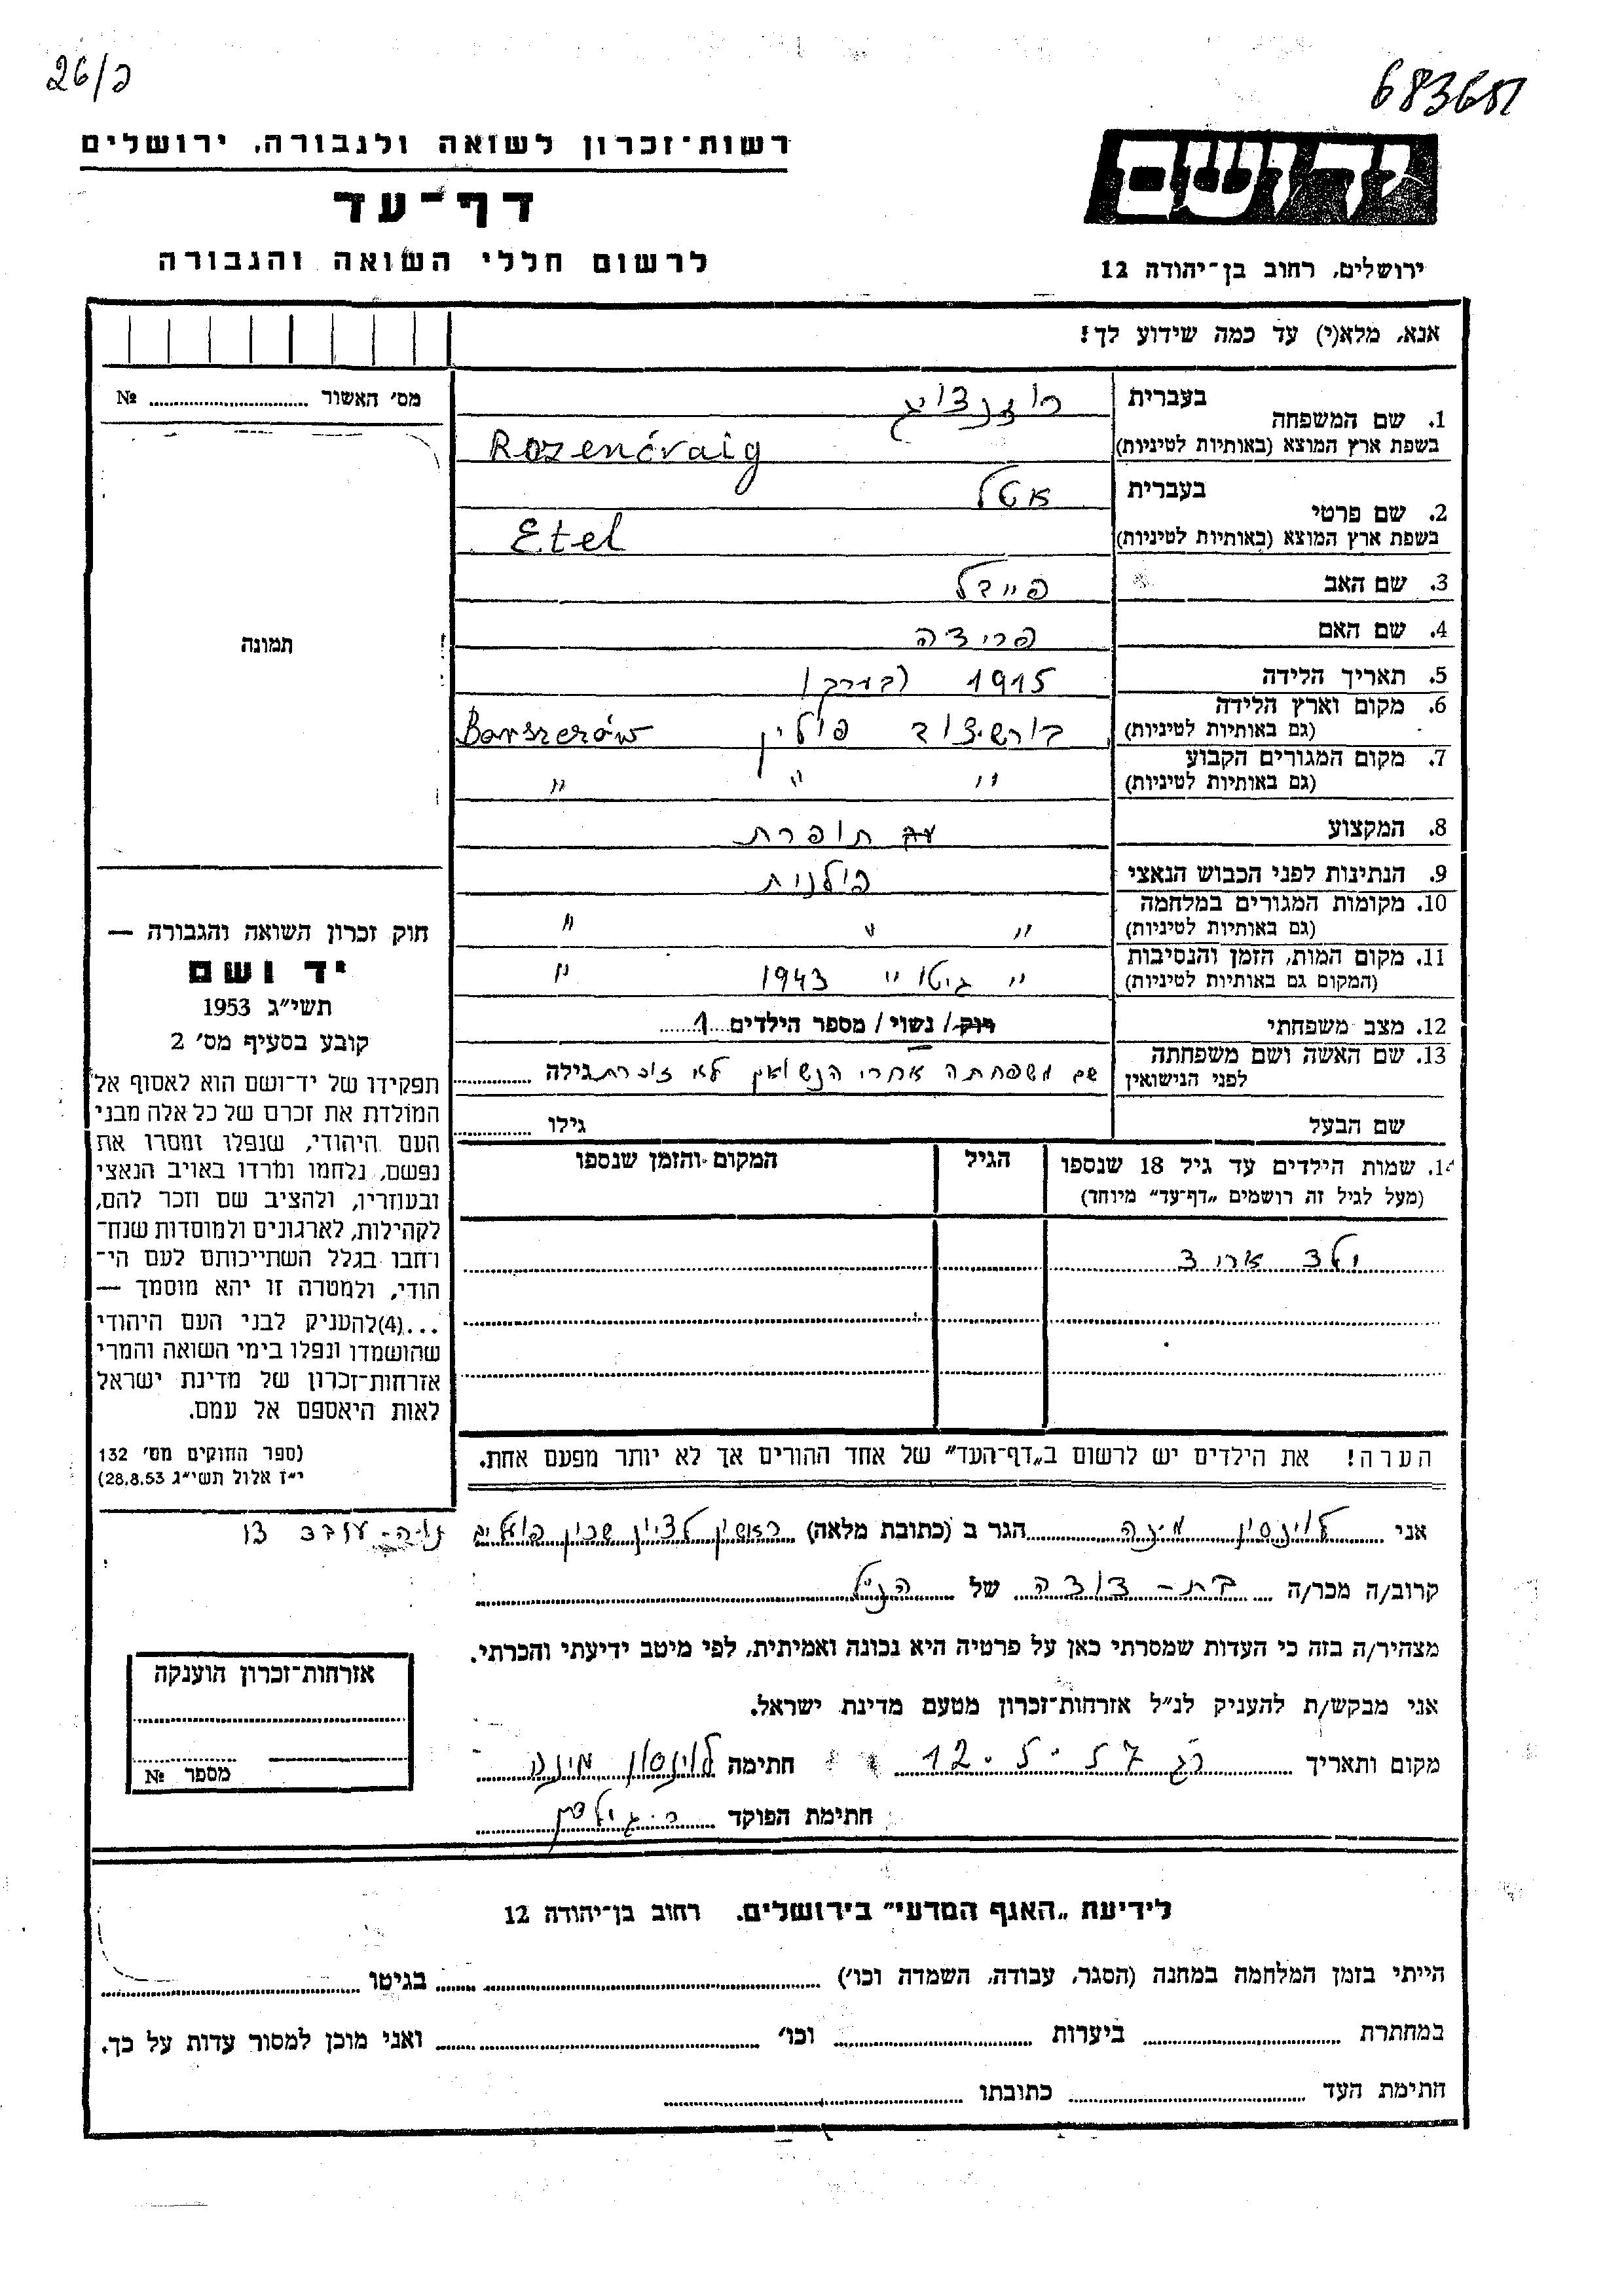 26/כ
68365
רשות־זכרון לשואה ולגבורה, ירושלים
דף־עד
לרשום חללי השואה והגבורה
יד ושם
ירושלים, רחוב בן־יהודה 12
אנא, מלא(י) עד כמה שידוע לך!
מס׳ האשור № 
תמונה
1. שם המשפחה
בעברית
בשפת ארץ המוצא (באותיות לטיניות)
Rozencvaig
2. שם פרטי
בעברית אטל
בשפת ארץ המוצא (באותיות לטיניות) Etel
3. שם האב פיידל
4. שם האם
5. תאריך הלידה 1915 (בערך)
6. מקום וארץ הלידה
(גם באותיות לטיניות) פולין Borszczów
7. מקום המגורים הקבוע
(גם באותיות לטיניות) " " "
8. המקצוע תופרת
9. הנתינות לפני הכבוש הנאצי פולנית
10. מקומות המגורים במלחמה
(גם באותיות לטיניות) " " "
11. מקום המות, הזמן והנסיבות
(המקום גם באותיות לטיניות) " גיטו " 1943 "
12. מצב משפחתי רוק/ נשוי/ מספר הילדים 1
13. שם האשה ושם משפחתה
לפני הנישואין שם משפחתה אחרי הנשואין לא זוכרת גילה
שם הבעל גילו
14. שמות הילדים עד גיל 18 שנספו
(מעל לגיל זה רושמים „דף־עד" מיוחד)
הגיל
המקום והזמן שנספו
ילד
הערה! את הילדים יש לרשום ב„דף־העד" של אחד ההורים אך לא יותר מפעם אחת.
חוק זכרון השואה והגבורה —
יד ושם
תשי״ג 1953
קובע בסעיף מס׳ 2
תפקידו של יד־ושם הוא לאסוף אל
המולדת את זכרם של כל אלה מבני
העם היהודי, שנפלו ומסרו את
נפשם, נלחמו ומרדו באויב הנאצי
ובעוזריו, ולהציב שם וזכר להם,
לקהילות, לארגונים ולמוסדות שנח־
רבו בגלל השתייכותם לעם הי־
הודי, ולמטרה זו יהא מוסמך —
...(4)להעניק לבני העם היהודי
שהושמדו ונפלו בימי השואה והמרי
אזרחות־זכרון של מדינת ישראל
לאות היאספם אל עמם.
(ספר החוקים מס׳ 132
י״ז אלול תשי״ג 28.8.53)
אני לוינסון מינה הגר ב (כתובת מלאה) ראשון לציון שכון פועלים
קרוב/ה מכר/ה בת-דודה של הנ״ל
מצהיר/ה בזה כי העדות שמסרתי כאן על פרטיה היא נכונה ואמיתית, לפי מיטב ידיעתי והכרתי.
אני מבקש/ת להעניק לנ״ל אזרחות־זכרון מטעם מדינת ישראל.
מקום ותאריך 12.5.57 חתימה לוינסון מינה
חתימת הפוקד
אזרחות־זכרון הוענקה
מספר №
לידיעת „האגף המדעי" בירושלים, רחוב בן־יהודה 12
הייתי בזמן המלחמה במחנה (הסגר, עבודה, השמדה וכו׳) בגיטו
במחתרת ביערות וכו׳ ואני מוכן למסור עדות על כך.
חתימת העד כתובתו